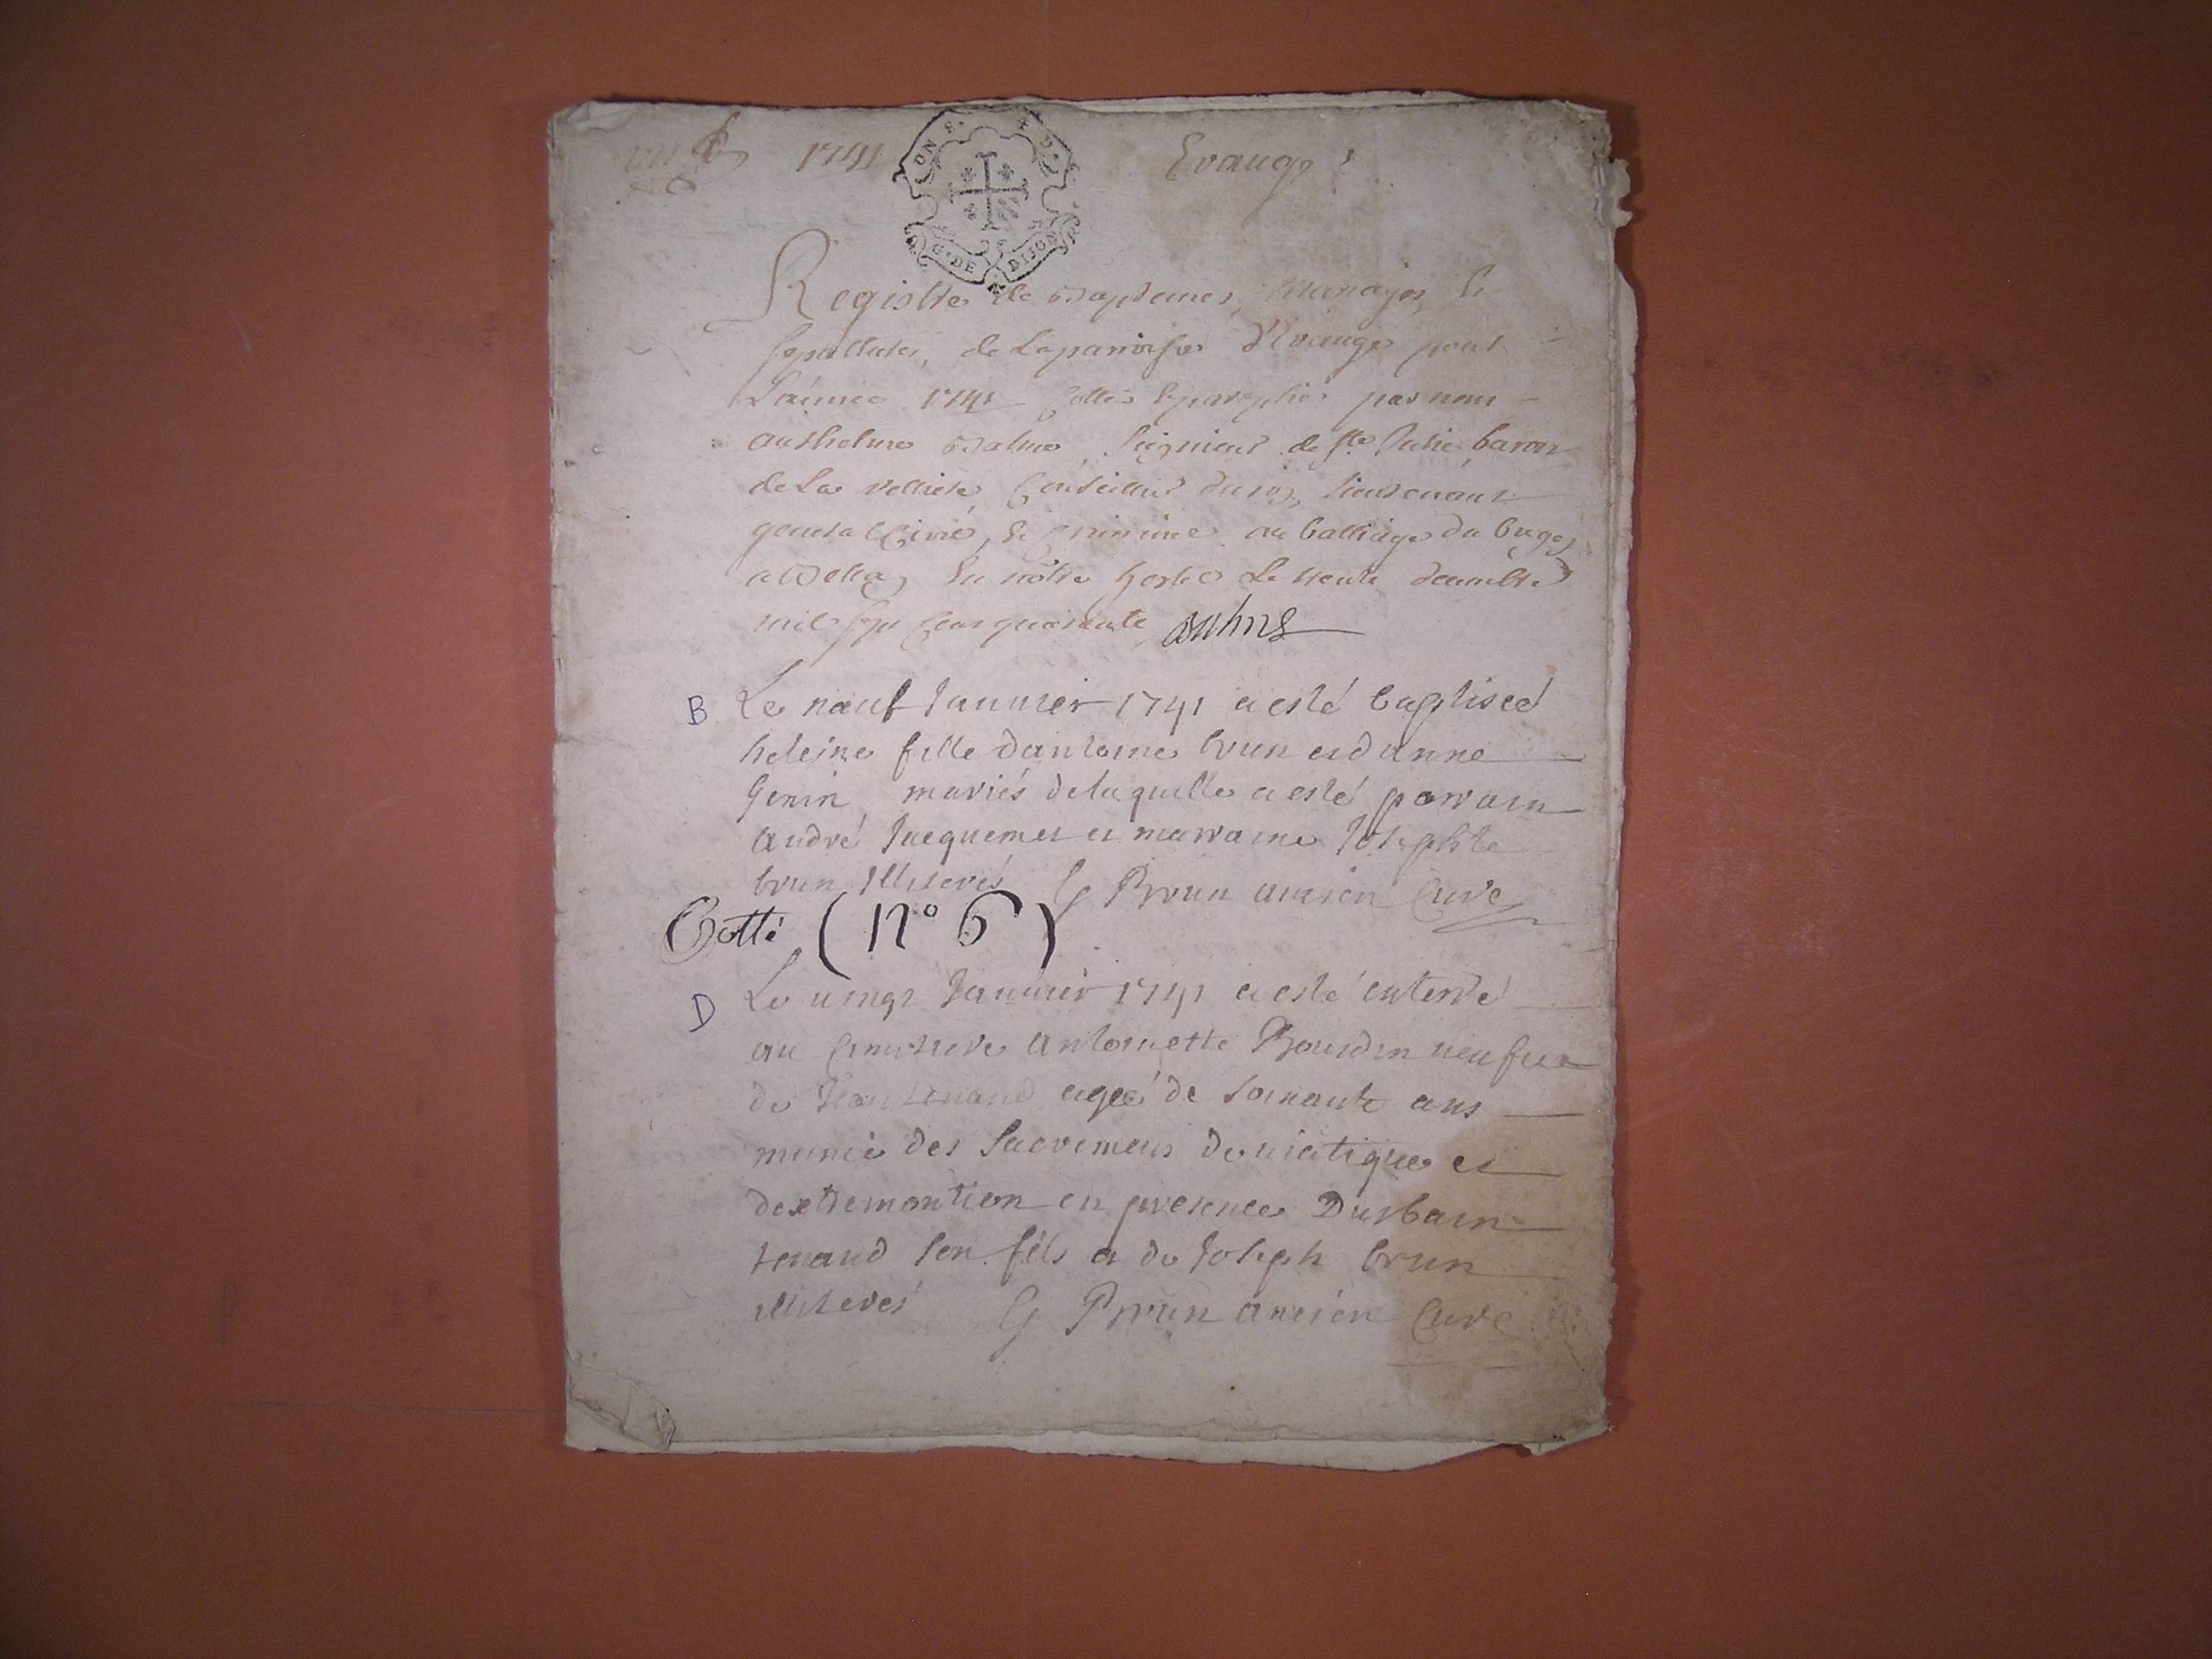 1741
Evauge
UN S. 4 D.
G. DE DIJON
Registre de Baptemes, Mariages, Et
sepultures, de La parroisse d'Evauge pour
L'année 1741 Cotté Et paraphé par nous
anthelme Balme, seigneur de Ste Julie, baron
de La velliere, Conseiller du roy, Lieutenant
general Civil, Et Criminel au balliage du bugey
a Belley, En nôtre hostel Le trente decembre
mil sept Cens quarante
B Le neuf Janvier 1741 a esté baptiseé
heleine fille dantoine brun et danne
Genin mariés de laquelle a esté parrain
andré Jacquemet et marraine Josephte
brun illiterés G Brun ancien Curé
Cotté (N° 6)
D Le vingt Janvier 1741 a esté enterré
au Cimetiere antoinette Bourdin veufve
de Jean tenand ageé de soixante ans
munie des Sacremens de viatique et
dextremontion en presence Durbain
tenand son fils et de Joseph brun
illiterés G Brun ancien Curé